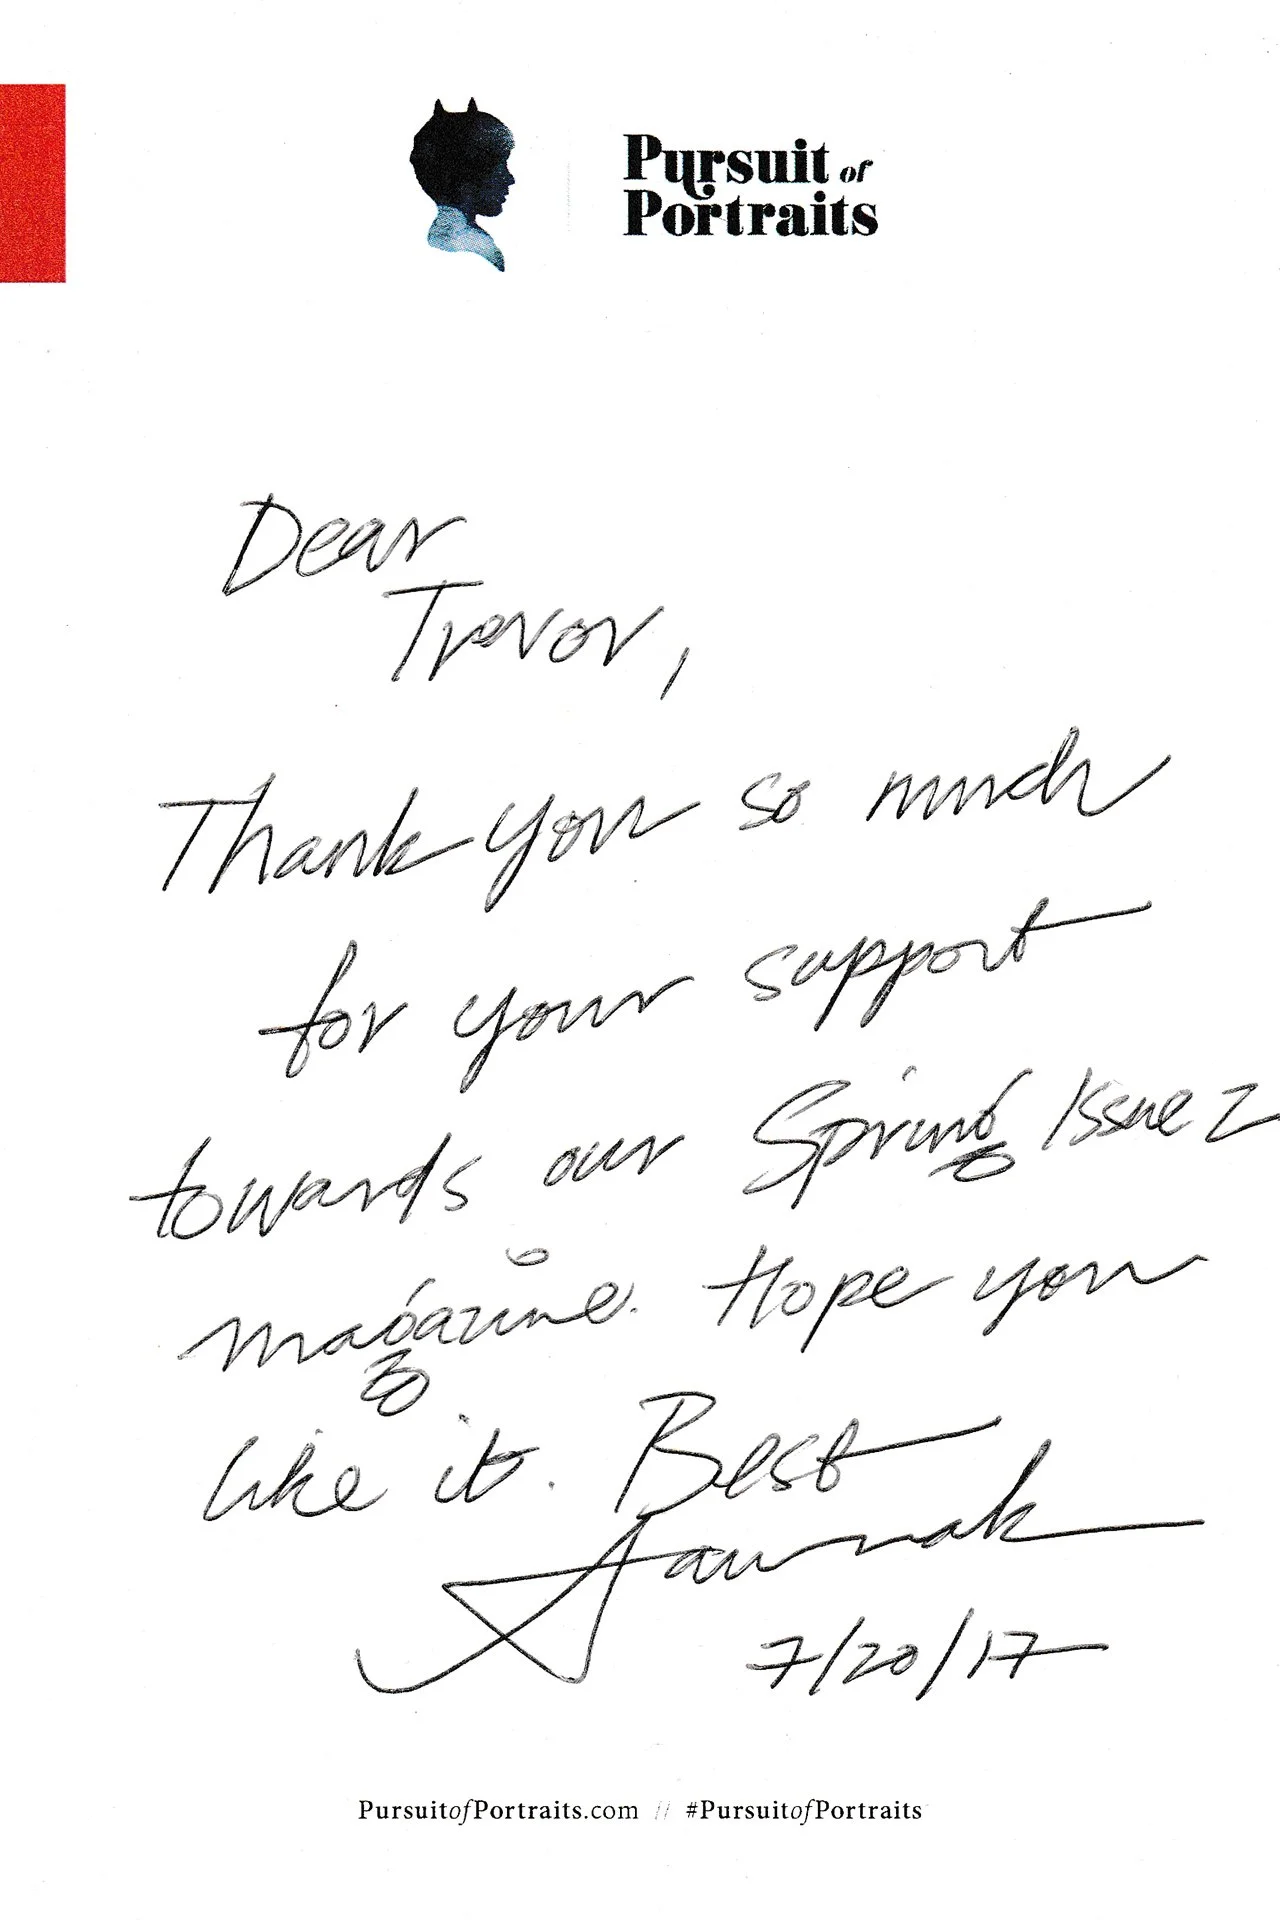 Pursuit of
Portraits
Dear
Trevor,
Thank you so much
for your support
towards our Spring Issue 2
magazine. Hope you
like it. Best
7/20/17
PursuitofPortraits.com // #PursuitofPortraits